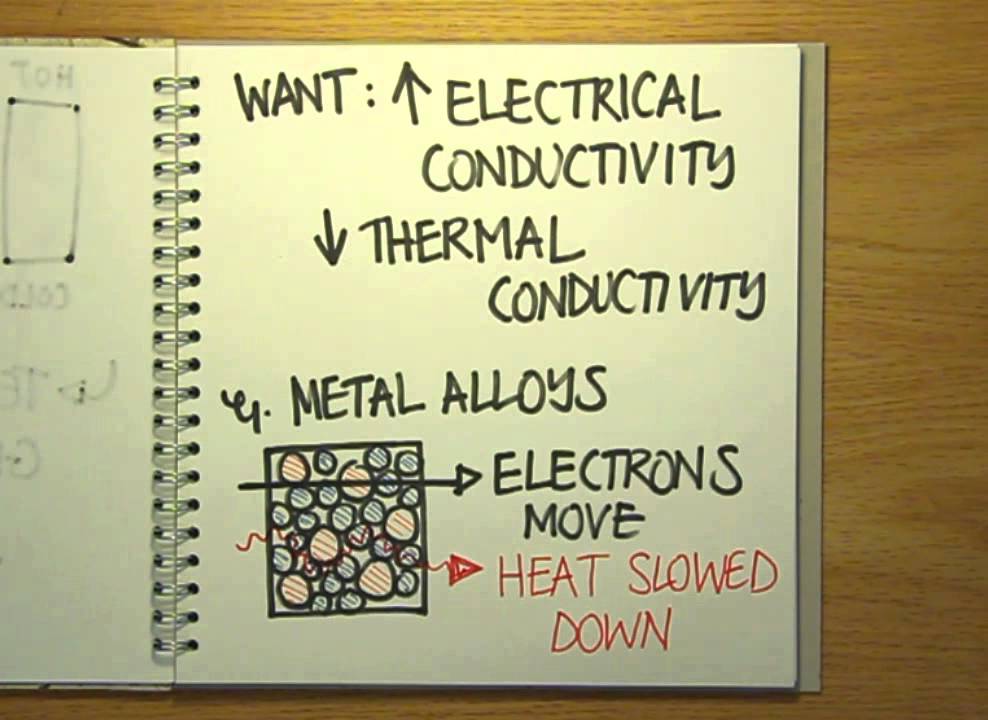 HOT
COLD
WANT: ↑ ELECTRICAL
CONDUCTIVITY
↓ THERMAL
CONDUCTIVITY
eg. METAL ALLOYS
ELECTRONS
MOVE
HEAT SLOWED
DOWN